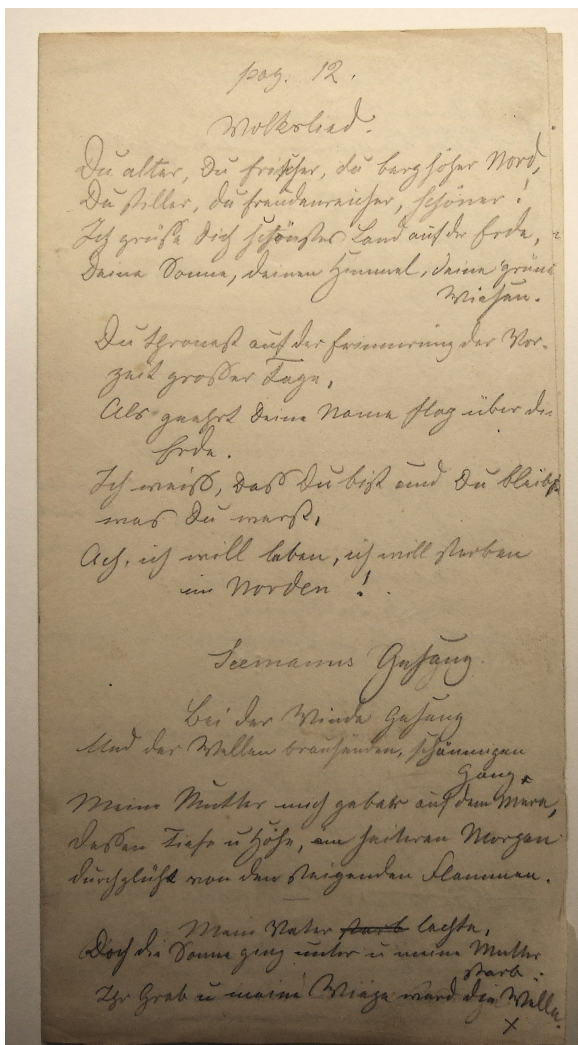 pag. 12.
Volkslied.
Du alter, Du frischer, du berghoher Nord,
Du stiller, du freudenreicher, schöner!
Ich grüße Dich schönstes Land auf der Erde,
Deine Sonne, deinen Himmel, deine grüne
Wiesen.
Du thronest auf der Erinnerung der Vor-
zeit grosser Tage,
Als geehrt Deine Name flog über die
Erde.
Ich weiß, daß Du bist und Du bleibst
was Du warst,
Ach, ich will leben, ich will sterben
im Norden!
Seemanns Gesang.
Bei der Winde Gesang
Und der Wellen brausenden, schäumigen
Gang,
Meine Mutter mich gebar auf dem Meere,
Dessen Tiefe u Höhe, am heiteren Morgen
durchglüht von den steigenden Flammen.
Mein Vater starb lachte,
Doch die Sonne ging unter u meine Mutter
starb:
Ihr Grab u meine Wiege ward die Welle.
x